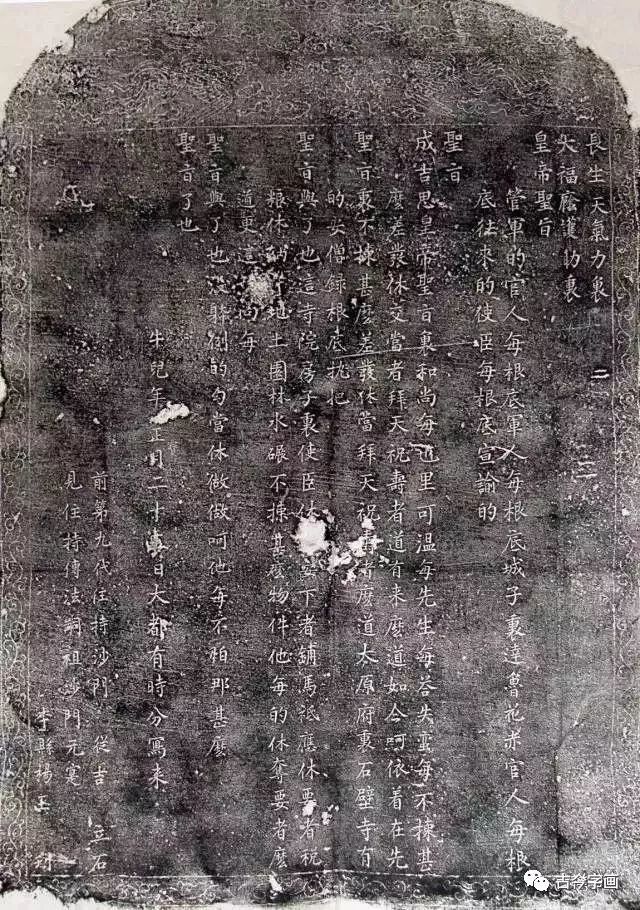 長生天氣力裏
大福廕護助裏
皇帝聖旨
管軍的官人每根底軍人每根底城子裏達魯花赤官人每根
底往來的使臣每根底宣諭的
聖旨
成吉思皇帝聖旨裏和尚每也里可温每先生每荅失蛮每不揀甚
麽差發休交當者拜天祝壽者道有来麽道如今呵依着在先
聖旨裏不揀甚麽差發休當拜天祝壽者麽道太原府裏石壁寺有
的安僧録根底執把
聖旨與了也這寺院房子裏使臣休安下者鋪馬祗應休要者税
粮休納者地土園林水碾不揀甚麽物件他每的休奪要者麽
道更這和尚每
聖旨與了也没躰例的勾當休做做呵他每不怕那甚麽
聖旨了也
牛兒年正月二十 日大都有時分寫来
前第九代住持沙門 從吉 立石
見住持傳法嗣祖沙門元
李縣楊玉 刊
古今字画